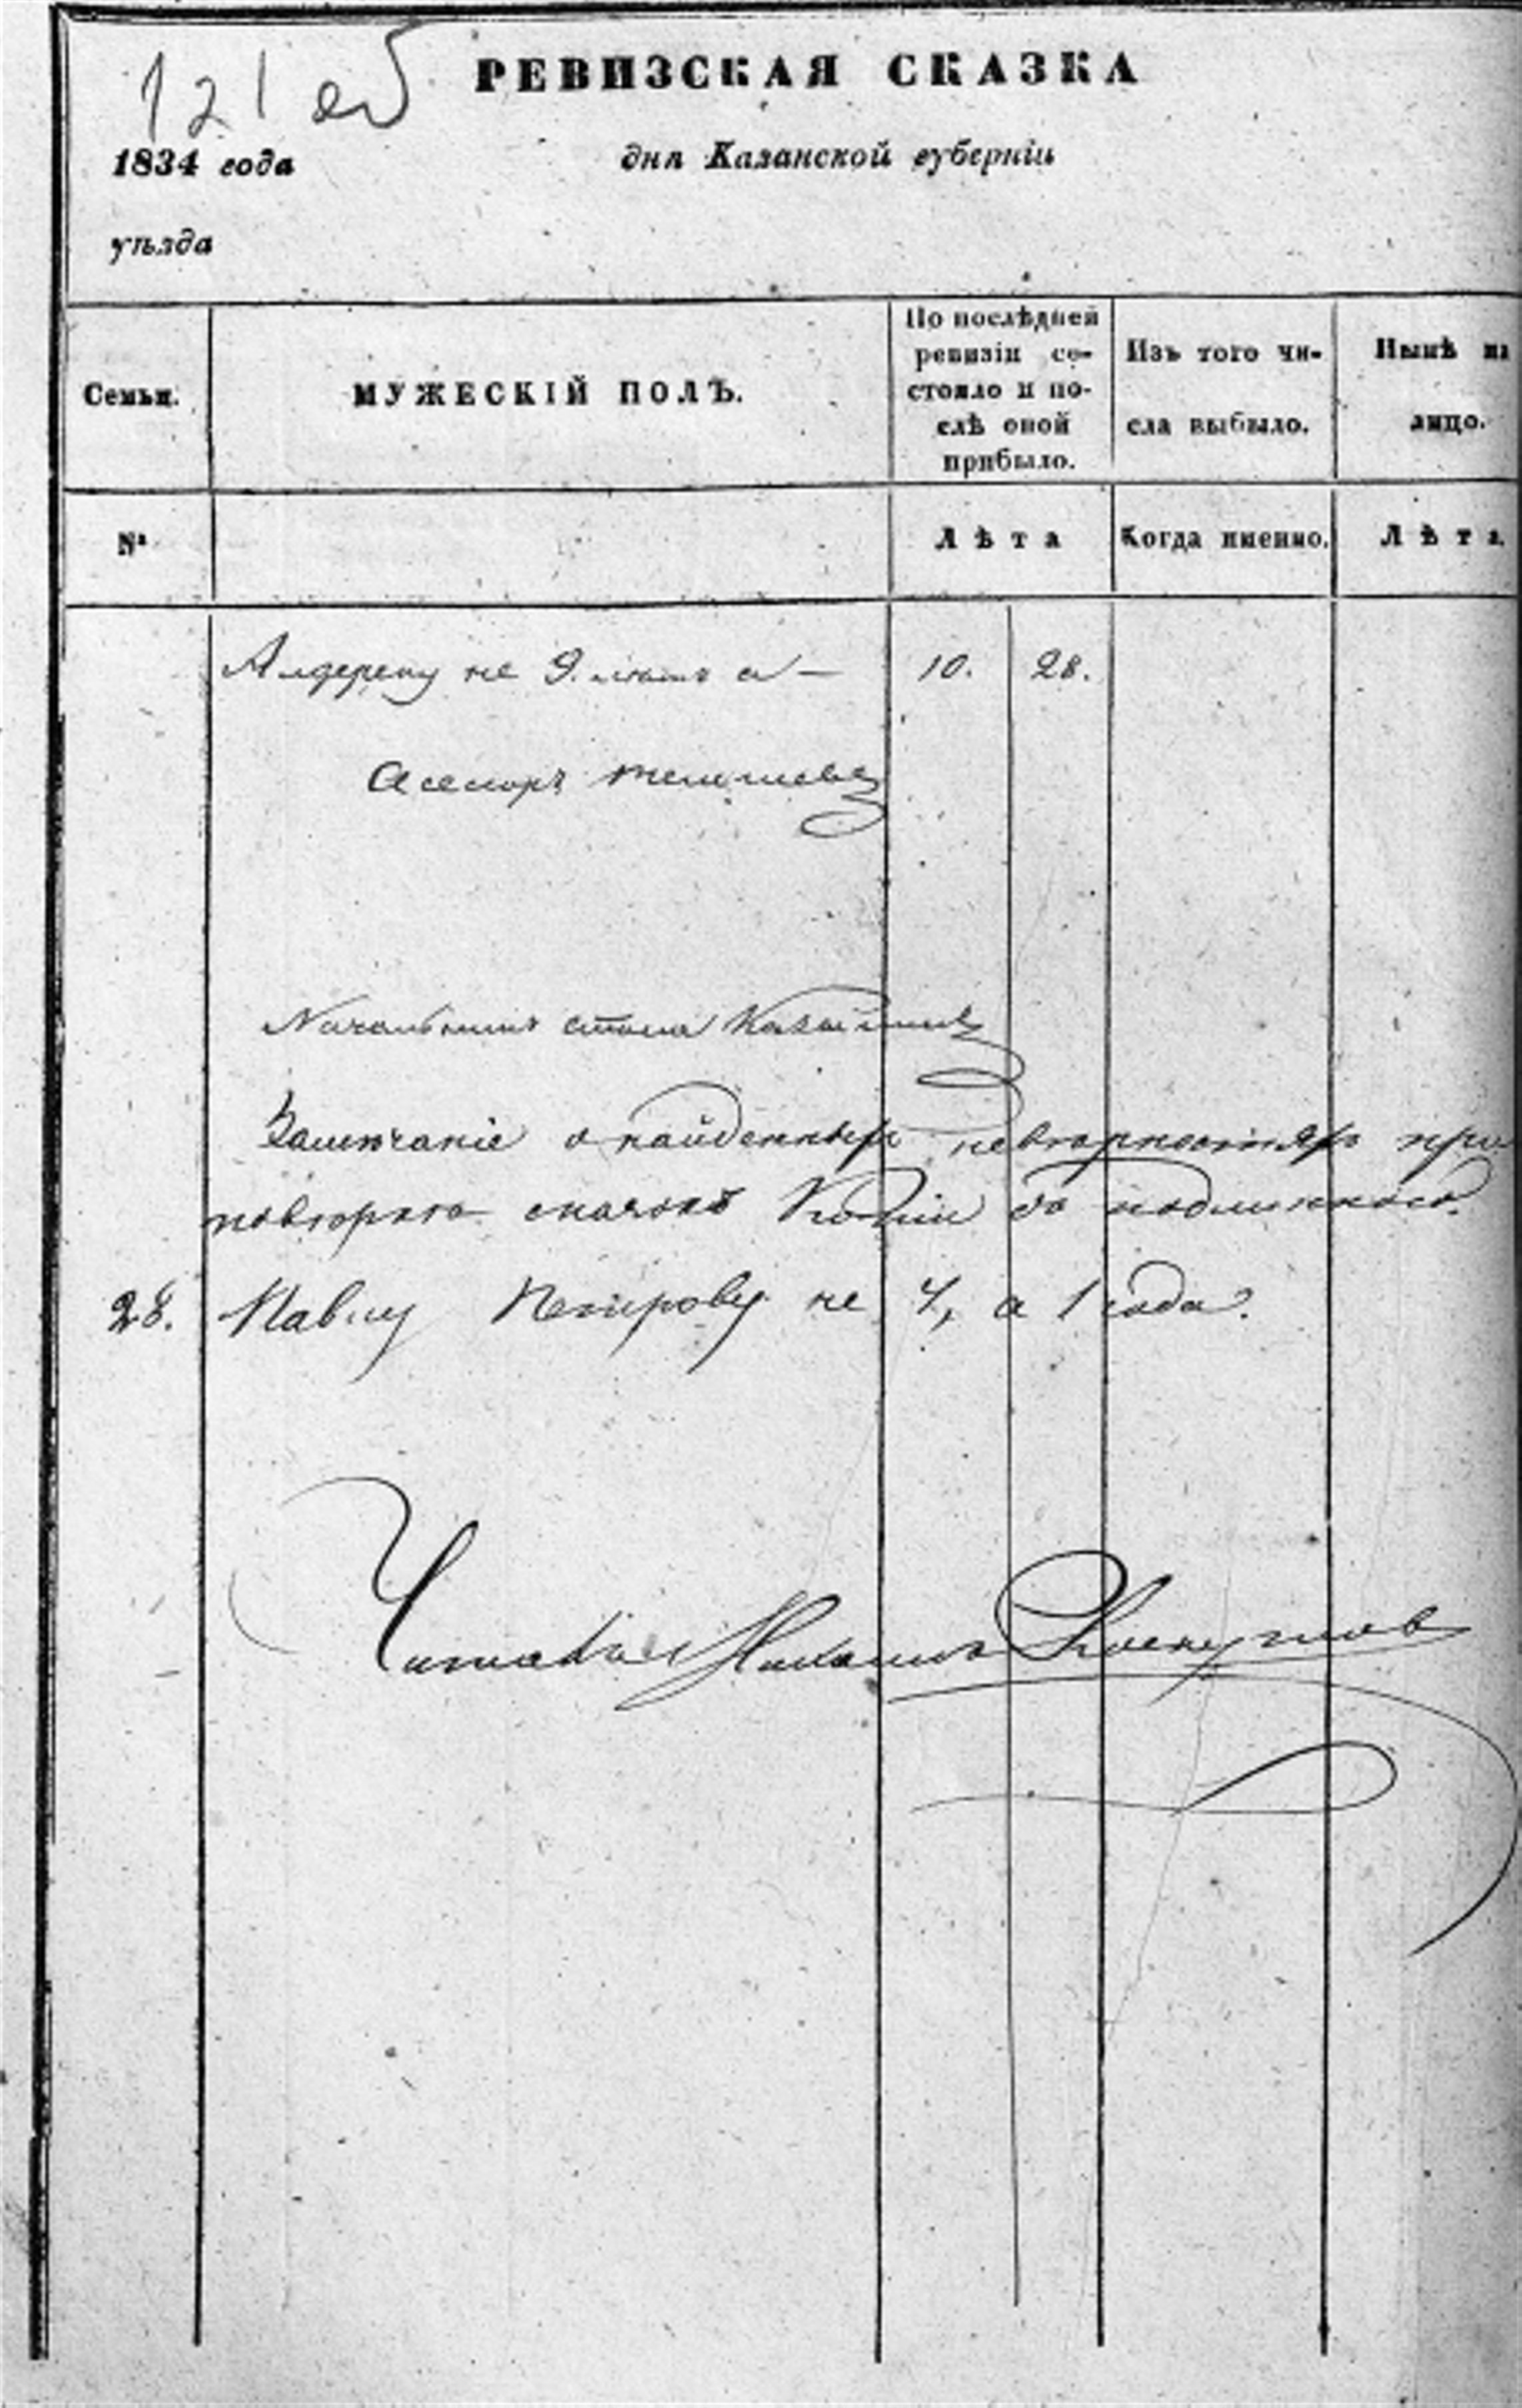 121 об
РЕВИЗСКАЯ СКАЗКА
1834 года дня Казанской губерніи
уѣзда
Семьи. МУЖЕСКІЙ ПОЛЪ. По послѣдней ревизіи состояло и послѣ оной прибыло. Изъ того числа выбыло. Нынѣ на лицо.
№ Лѣта Когда именно. Лѣта.
не 9. лѣтъ а — 10. 28.
Асесоръ
Начальникъ стола
Замѣчаніе о найденныхъ невѣрностяхъ при
повѣркѣ сказокъ Копіи съ подлинною.
28. Павлу Петрову не 4, а 1 года.
Читалъ